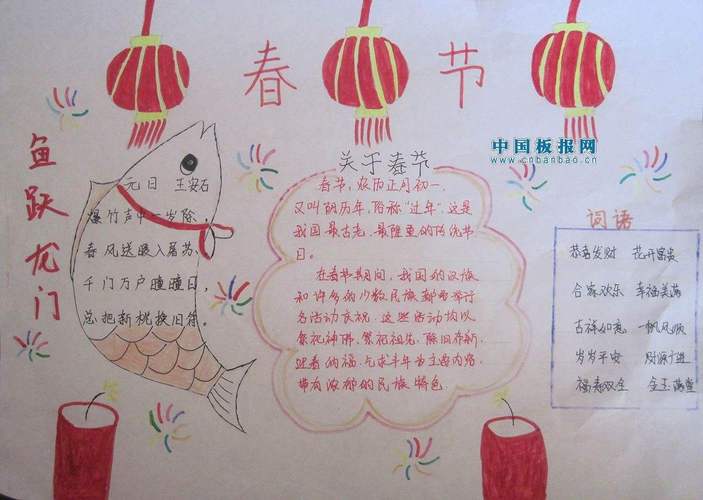 春节
中国板报网
www.cnbanbao.cn
鱼跃龙门
元日 王安石
爆竹声中一岁除，
春风送暖入屠苏，
千门万户曈曈日，
总把新桃换旧符。
关于春节
春节，农历正月初一，
又叫阴历年，俗称“过年”，这是
我国最古老，最隆重的传统节
日。
在春节期间，我国的汉族
和许多的少数民族都要举行
各活动庆祝，这些活动均以
祭祀神佛，祭祀祖先，除旧布新，
迎春纳福，乞求丰年为主要内容，
带有浓郁的民族特色
词语
恭喜发财 花开富贵
合家欢乐 幸福美满
吉祥如意 一帆风顺
岁岁平安 财源广进
福寿双全 金玉满堂